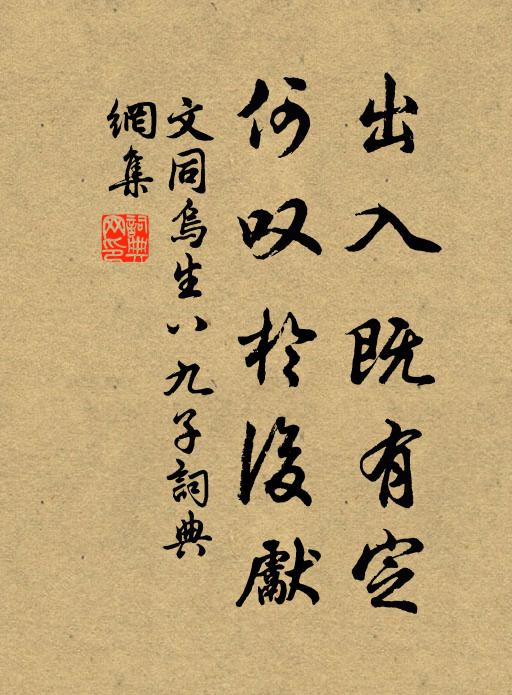 出入既有定
何叹於後獻
文同烏生八九子詞典
網集
詞典网印